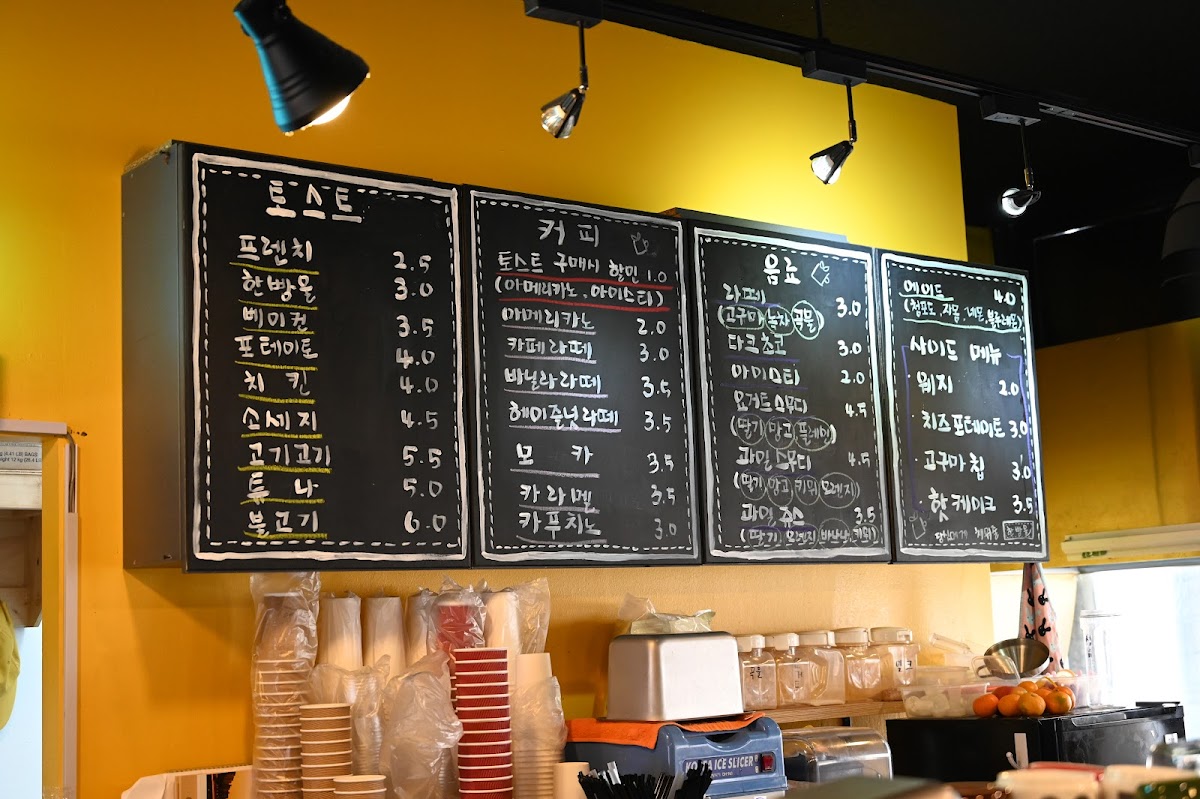 토스트
프렌치 2.5
한방울 3.0
베이컨 3.5
포테이토 4.0
치킨 4.0
소세지 4.5
고기고기 5.5
튜나 5.0
불고기 6.0
커피
토스트 구매시 할인 1.0
(아메리카노, 아이스티)
아메리카노 2.0
카페라떼 3.0
바닐라라떼 3.5
헤이즐넛라떼 3.5
모카 3.5
카라멜 3.5
카푸치노 3.0
음료
라떼 3.0
(고구마 녹차 곡물)
다크초코 3.0
아이스티 2.0
요거트스무디 4.5
(딸기, 망고, 플레인)
과일스무디 4.5
(딸기, 망고, 키위, 오렌지)
과일쥬스 3.5
(딸기, 오렌지, 바나나, 키위)
에이드 4.0
(청포도, 자몽, 레몬, 블루레몬)
사이드 메뉴
웨지 2.0
치즈포테이토 3.0
고구마칩 3.0
핫케이크 3.5
ICE SLICER